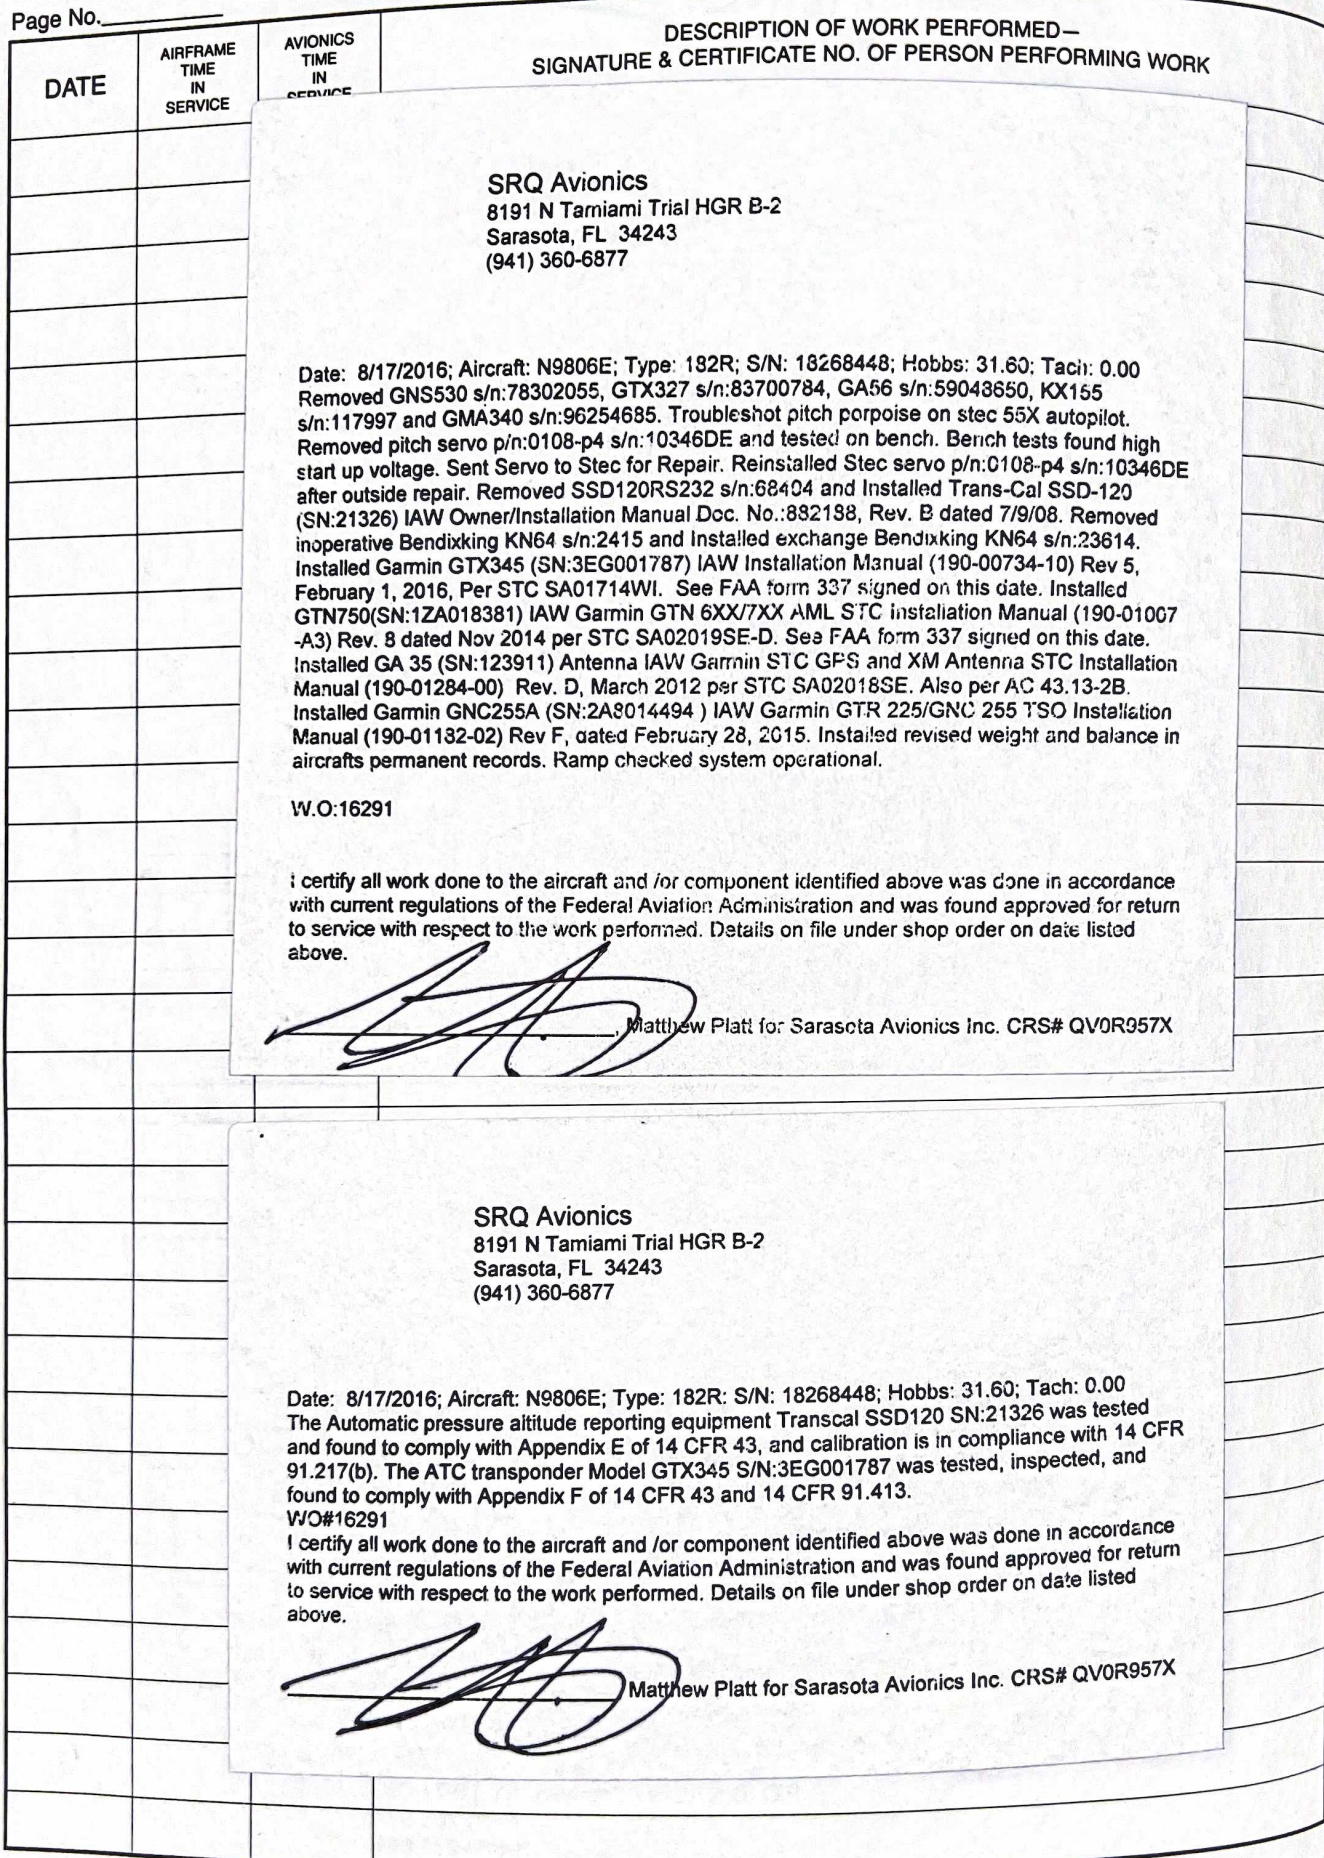 Page No.
DATE
AIRFRAME
TIME
IN
SERVICE
AVIONICS
TIME
IN
SERVICE
DESCRIPTION OF WORK PERFORMED—
SIGNATURE & CERTIFICATE NO. OF PERSON PERFORMING WORK
SRQ Avionics
8191 N Tamiami Trial HGR B-2
Sarasota, FL 34243
(941) 360-6877
Date: 8/17/2016; Aircraft: N9806E; Type: 182R; S/N: 18268448; Hobbs: 31.60; Tach: 0.00
Removed GNS530 s/n:78302055, GTX327 s/n:83700784, GA56 s/n:59048650, KX155
s/n:117997 and GMA340 s/n:96254685. Troubleshot pitch porpoise on stec 55X autopilot.
Removed pitch servo p/n:0108-p4 s/n:10346DE and tested on bench. Bench tests found high
start up voltage. Sent Servo to Stec for Repair. Reinstalled Stec servo p/n:0108-p4 s/n:10346DE
after outside repair. Removed SSD120RS232 s/n:68404 and Installed Trans-Cal SSD-120
(SN:21326) IAW Owner/Installation Manual Doc. No.:882188, Rev. B dated 7/9/08. Removed
inoperative Bendixking KN64 s/n:2415 and Installed exchange Bendixking KN64 s/n:23614.
Installed Garmin GTX345 (SN:3EG001787) IAW Installation Manual (190-00734-10) Rev 5,
February 1, 2016, Per STC SA01714WI. See FAA form 337 signed on this date. Installed
GTN750(SN:1ZA018381) IAW Garmin GTN 6XX/7XX AML STC Installation Manual (190-01007
-A3) Rev. 8 dated Nov 2014 per STC SA02019SE-D. See FAA form 337 signed on this date.
Installed GA 35 (SN:123911) Antenna IAW Garmin STC GPS and XM Antenna STC Installation
Manual (190-01284-00) Rev. D, March 2012 per STC SA02018SE. Also per AC 43.13-2B.
Installed Garmin GNC255A (SN:2A8014494 ) IAW Garmin GTR 225/GNC 255 TSO Installation
Manual (190-01182-02) Rev F, dated February 28, 2015. Installed revised weight and balance in
aircrafts permanent records. Ramp checked system operational.
W.O:16291
I certify all work done to the aircraft and /or component identified above was done in accordance
with current regulations of the Federal Aviation Administration and was found approved for return
to service with respect to the work performed. Details on file under shop order on date listed
above.
, Matthew Platt for Sarasota Avionics Inc. CRS# QV0R957X
SRQ Avionics
8191 N Tamiami Trial HGR B-2
Sarasota, FL 34243
(941) 360-6877
Date: 8/17/2016; Aircraft: N9806E; Type: 182R: S/N: 18268448; Hobbs: 31.60; Tach: 0.00
The Automatic pressure altitude reporting equipment Transcal SSD120 SN:21326 was tested
and found to comply with Appendix E of 14 CFR 43, and calibration is in compliance with 14 CFR
91.217(b). The ATC transponder Model GTX345 S/N:3EG001787 was tested, inspected, and
found to comply with Appendix F of 14 CFR 43 and 14 CFR 91.413.
WO#16291
I certify all work done to the aircraft and /or component identified above was done in accordance
with current regulations of the Federal Aviation Administration and was found approved for return
to service with respect to the work performed. Details on file under shop order on date listed
above.
Matthew Platt for Sarasota Avionics Inc. CRS# QV0R957X